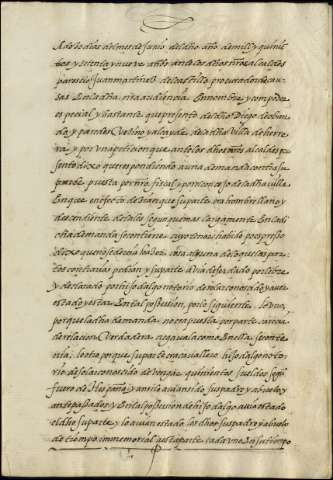 A doze dias del mes de Junio del dho año de mill y quini
y setenta y nueve años ante los dhos nros alcaldes
parescio Juan martinez del castillo procurador de cau
sas En la dha nra audiencia En nombre y con pode
especial y bastante que presento del dho Diego de
y paredes Vecino y alcayde de la dha Villa de herre
ra, y por una peticion que ante los dhos nros alcaldes pre
sento dixo que respondiendo a una demanda contra su
parte puesta por nro fiscal y por el concejo de la dha villa
En que en efecto dezian que su parte era hombre llano y
descendiente de tales segun que mas largamente En la di
cha demanda se contiene cuyo tenor habido por espreso
dixo que no se devia hazer cosa alguna de lo que las par
tes contrarias pedian y su parte avia de ser dado por libre
y declarado por hijo dalgo notorio de solar conoscido y
estado y estar En tal posesion por lo siguiente lo uno
por que la dha demanda no era puesta por parte
de relacion Verdadera negavala como En ella se conte
nia lo otro por que su parte era cavallero hijo dalgo noto
rio de solar conoscido de vengar quinientos sueldos segun
fuero de España y ansi lo avian sido su padre y abuelo y
antepasados y En tal posesion de hijo dalgo avia estado
el dho su parte y lo avian estado los dhos su padre y abuelo
de tiempo immemorial a esta parte cada uno En su tiempo